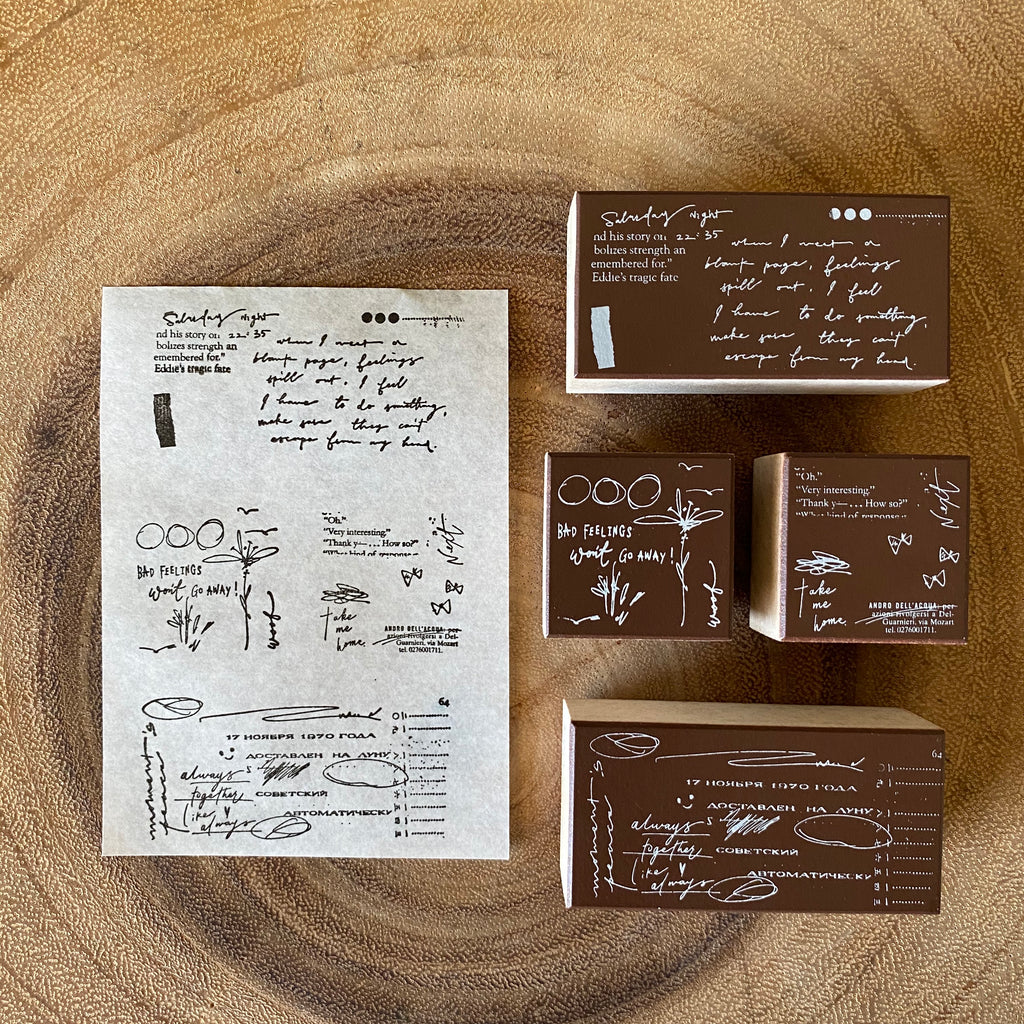 Saturday Night
nd his story on 22:35
bolizes strength an
emembered for."
Eddie's tragic fate
when I meet a
blank page, feelings
spill out. I feel
I have to do something,
make sure they can't
escape from my head.
BAD FEELINGS
won't GO AWAY!
woof
"Oh."
"Very interesting."
"Thank y— ... How so?"
"What kind of response
Next
take
me
home.
ANDRO DELL'ACQUA: per
azioni rivolgersi a Del-
Guarnieri, via Mozart
tel. 0276001711.
64
17 НОЯБРЯ 1970 ГОДА
ДОСТАВЛЕН НА ЛУНУ
always
together
like
always
5
СОВЕТСКИЙ
АВТОМАТИЧЕСКУ
moment's
peace
Saturday Night
nd his story on 22:35
bolizes strength an
emembered for."
Eddie's tragic fate
when I meet a
blank page, feelings
spill out. I feel
I have to do something,
make sure they can't
escape from my head.
BAD FEELINGS
won't GO AWAY!
woof
"Oh."
"Very interesting."
"Thank y— ... How so?"
"What kind of response
Next
take
me
home.
ANDRO DELL'ACQUA: per
azioni rivolgersi a Del-
Guarnieri, via Mozart
tel. 0276001711.
64
17 НОЯБРЯ 1970 ГОДА
ДОСТАВЛЕН НА ЛУНУ
always
together
like
always
5
СОВЕТСКИЙ
АВТОМАТИЧЕСКУ
moment's
peace